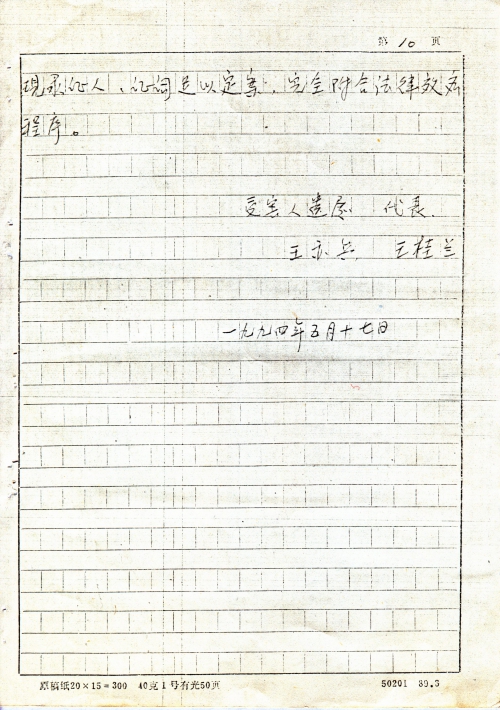 第 10 页
现录证人、证词足以定案,完全附合法律效力
程序。
受害人遗属 代表.
王亦兵 王桂兰
一九九四年五月十七日
原稿纸20×15=300 40克1号有光50页 50201 89.3